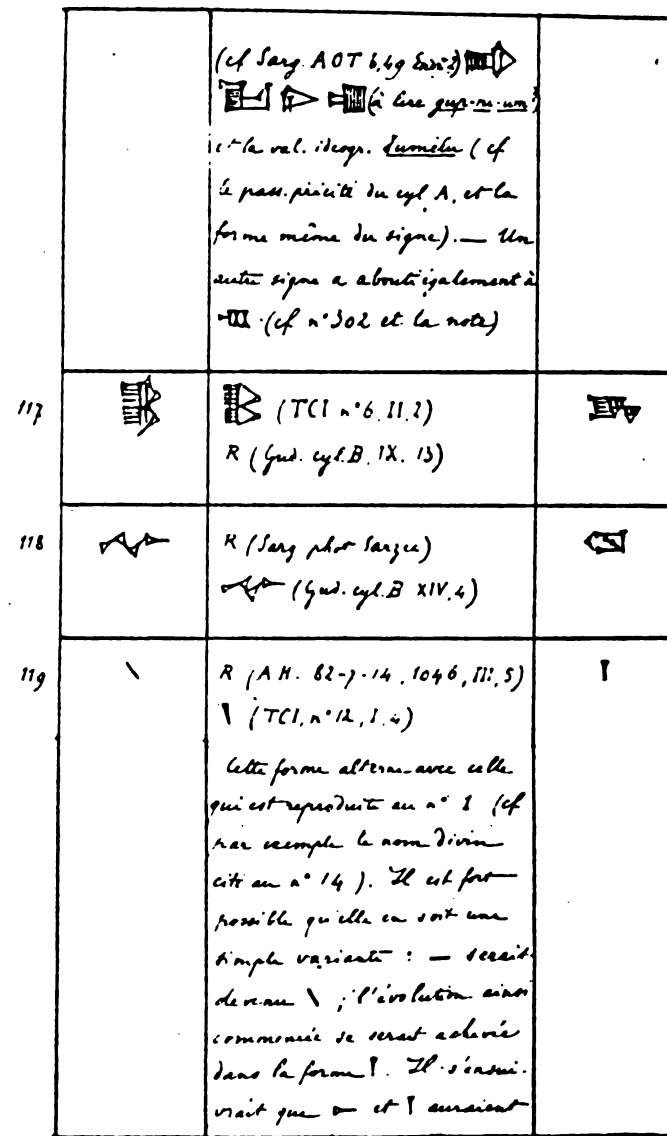 (cf Sarg. AOT b, 49
(à lire gur-ru-um?)
et la val. ideogr. šumêlu (cf
le pass. précité du cyl. A, et la
forme même du signe). — Un
autre signe a abouti également à
(cf n° 302 et la note)
117 (TCI n° 6, II, 2)
R (Gud. cyl. B, IX, 13)
118 R (Sarg phot Sarzec)
(Gud. cyl. B XIV, 4)
119 \ R (A.H. 82-7-14, 1046, III, 5)
(TCI, n° 12, I, 4)
Cette forme alterne avec celle
qui est reproduite au n° 1 (cf
par exemple le nom divin
cité au n° 14). Il est fort
possible qu'elle en soit une
simple variante : — serait
devenu \ ; l'évolution ainsi
commencée se serait achevée
dans la forme 𒁹. Il s'ensui-
vrait que 𒀸 et 𒁹 auraient